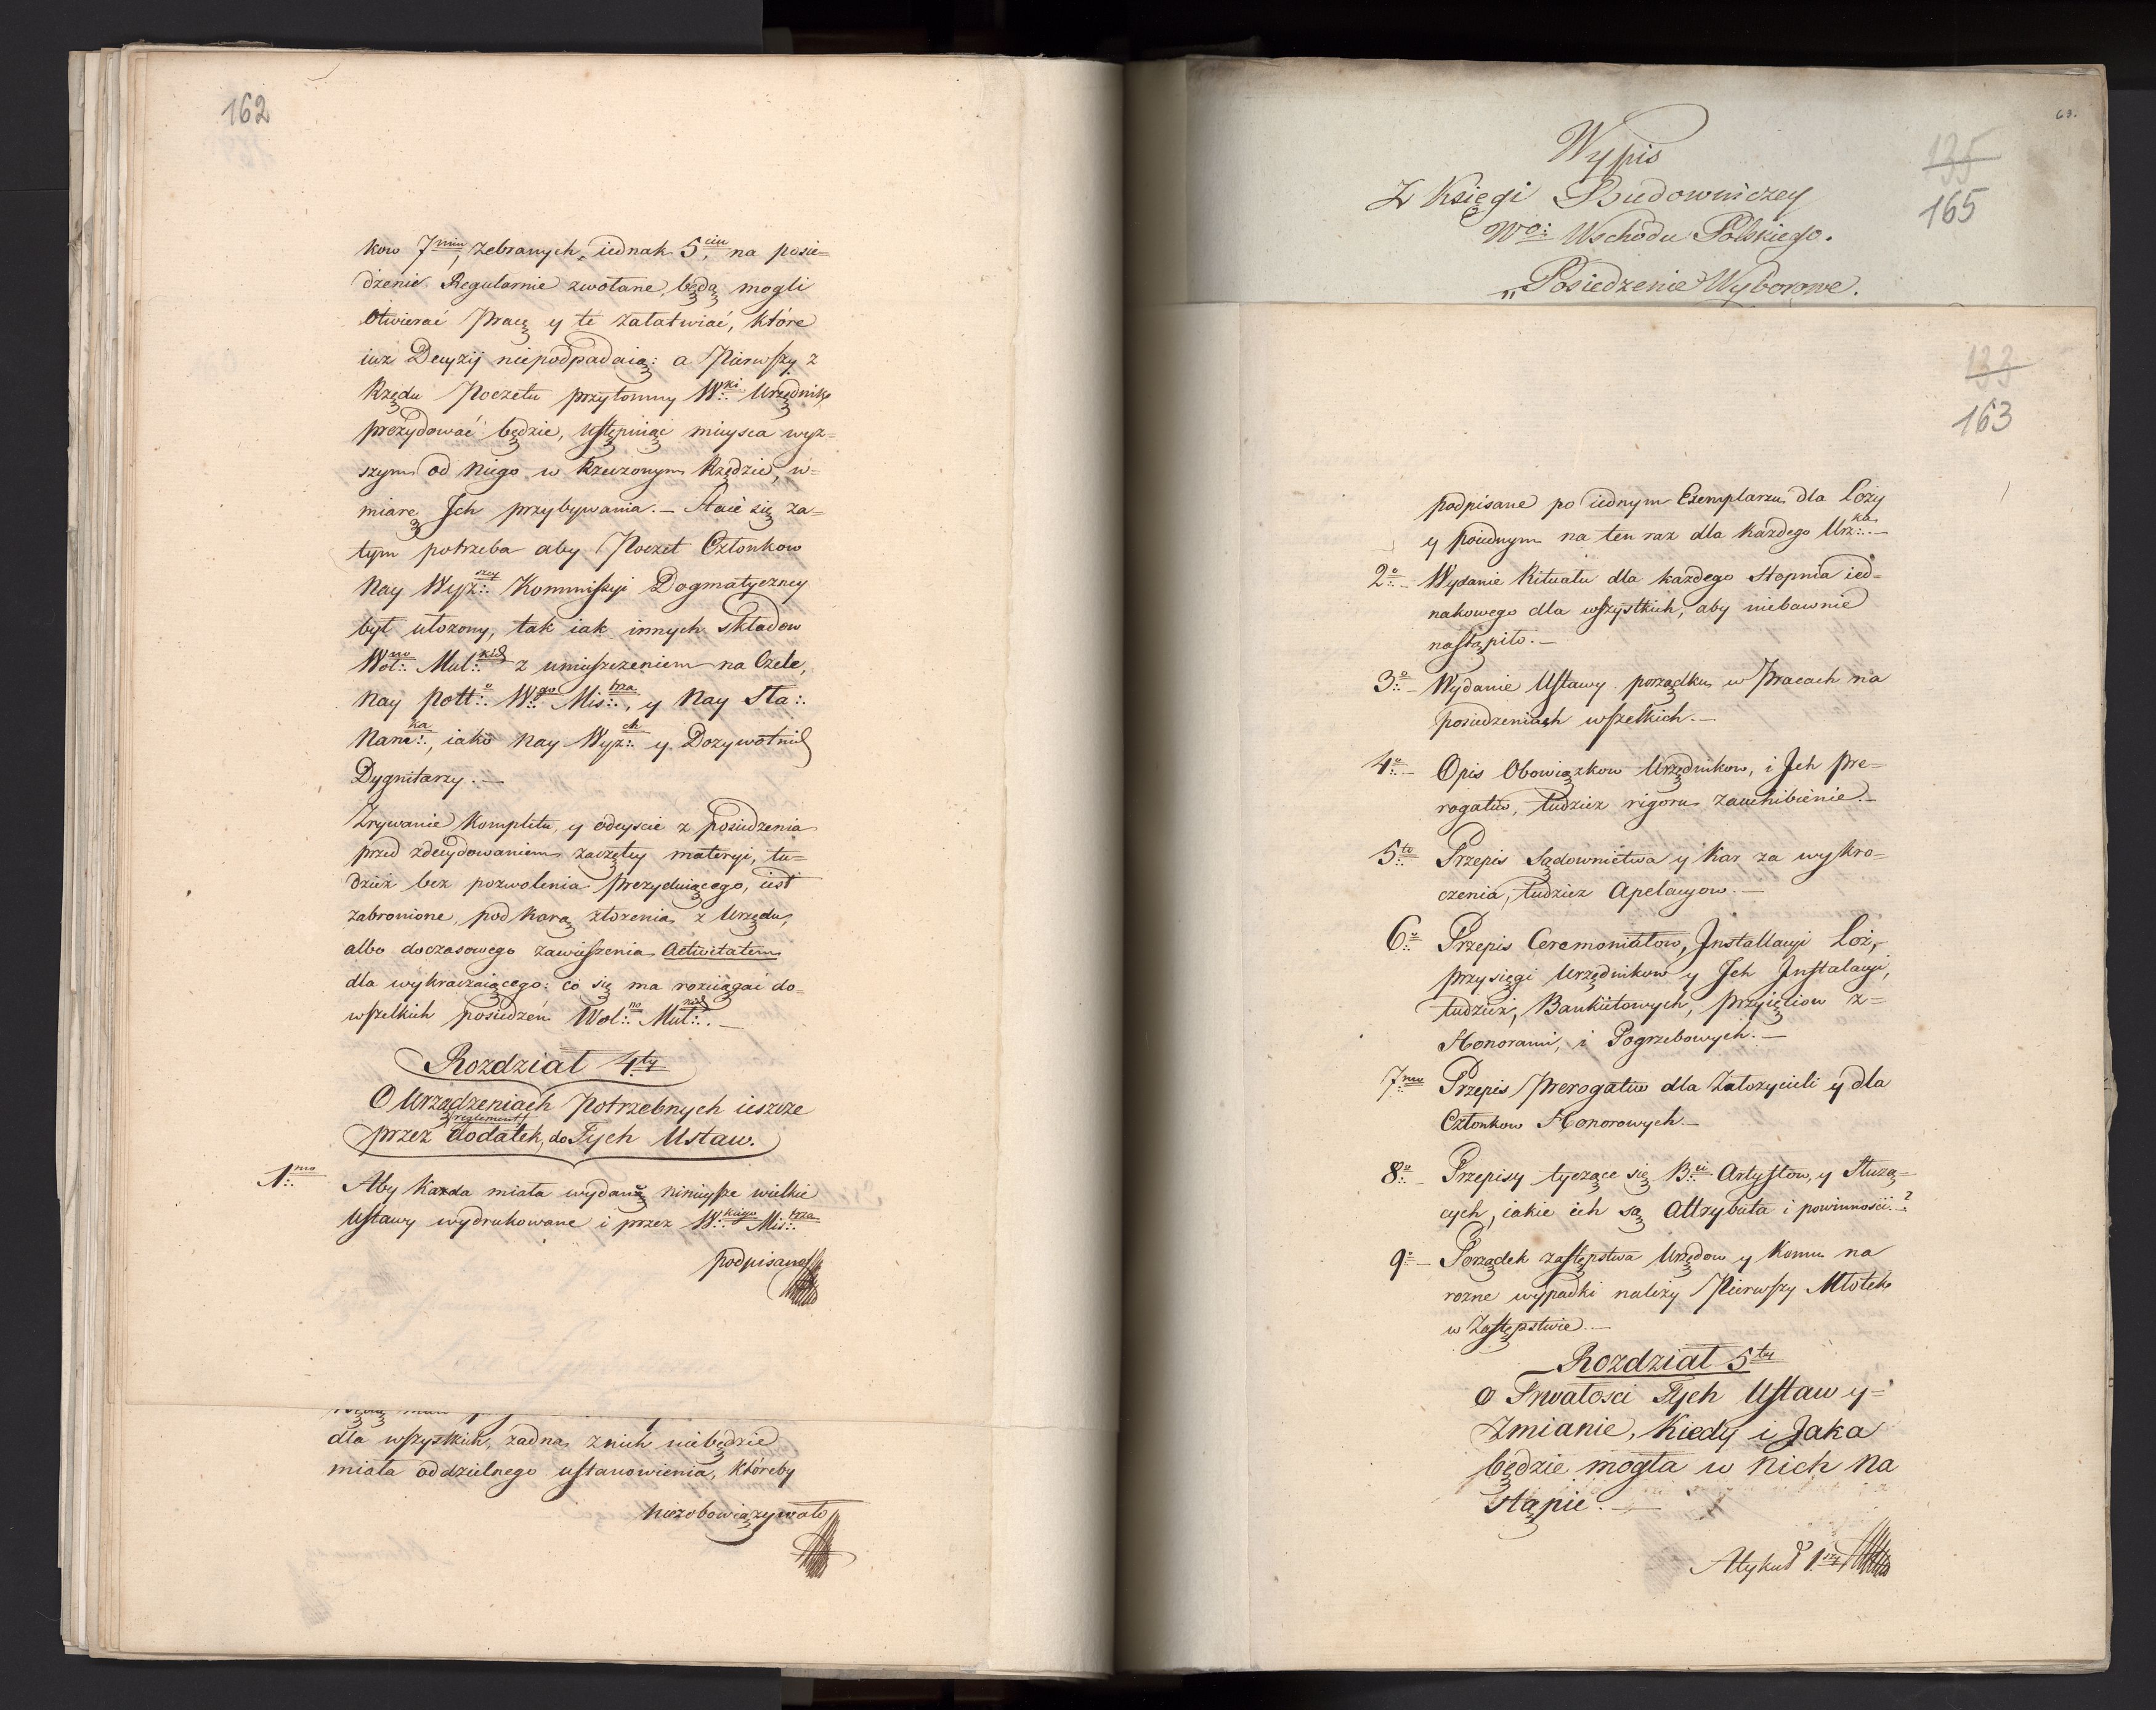 162
kow 7miu, zebranych, iednak 5ciu, na posie=
dzenie Regularnie zwołane, będą mogli
Otwierać Pracę y te załatwiać, które
iuż Decyzij niepodpadaią: a Pierwszy z
Rzędu Pocztu przytomny W:ki Urzędnik
prezydować będzie, ustępuiąc mieysca wyż=
szym od Niego w Rzeczonym Rzędzie, w=
miarę Ich przybywania. — Staie się za=
tym potrzeba aby Poczet Członkow
Nay Wyż:szey Kommissyi Dogmatyczney
był ułożony, tak iak innych składow
Wol:no Mul:kich z umieszczeniem na Czele,
Nay Pott:o W:go Mis:trza, y Nay Sta:
Nam:ka, iako Nay Wyż:ch y Dożywotnich
Dygnitarzy. —
Zrywanie Kompletu, y odeyście z posiedzenia
przed zdecydowaniem zaczętey materyi, tu=
dzież bez pozwolenia prezyduiącego, iest
zabronione, pod karą złożenia z Urzędu,
albo doczasowego zawieszenia Activitatem
dla wykraczaiącego: co się ma rozciągać do=
wszelkich posiedzeń Wol:no Mul:kich. —
Rozdział 4ty
O Urządzeniach Potrzebnych ieszcze
/reglement/
przez dodatek, do Tych Ustaw.
1mo Aby Każda miała wydaną ninieysze wielkie
Ustawy wydrukowane i przez W:kiego Mis:trza
podpisane
dla wszystkich, żadna z nich niebędzie
miała oddzielnego ustanowienia, któreby
niezobowiązywało
63.
Wypis
Z Księgi Budowniczey
Wo: Wschodu Polskiego.
"Posiedzenie Wyborowe.
135
165
133
163
podpisane po iednym Exemplarzu dla Loży
y poiednym na ten raz dla każdego Urz:ka —
2o — Wydanie Rituału dla każdego Stopnia ied=
nakowego dla wszystkich, aby niebawnie
nastąpiło. —
3o — Wydanie Ustawy porządku w Pracach na
posiedzeniach wszelkich. —
4o — Opis Obowiązkow Urzędnikow, i Ich Pre=
rogatiw, tudzież rigoru zauchibienie. —
5to Przepis Sądownictwa y Kar za wykro=
czenia, tudzież Apelacyow. —
6o Przepis Ceremoniałow, Installacyi Loż,
przysięgi Urzędnikow y Ich Instalacyi,
tudzież, Bankietowych, przyięciow z=
Honorami, i Pogrzebowych. —
7mo Przepis Prerogatiw dla Założycieli y dla
Członkow Honorowych. —
8o — Przepisy tyczące się B:ci Artystow, y Służą=
cych, iakie ich są Attrybuta i powinności. ?
9o — Porządek zastępstwa Urzędow y Komu na
rożne wypadki należy Pierwszy Młotek
w Zastępstwie. —
Rozdział 5ty
O Trwałości Tych Ustaw y=
Zmianie, Kiedy i Jaka
będzie mogła w Nich Na
stąpić. —
Atykuł 1szy